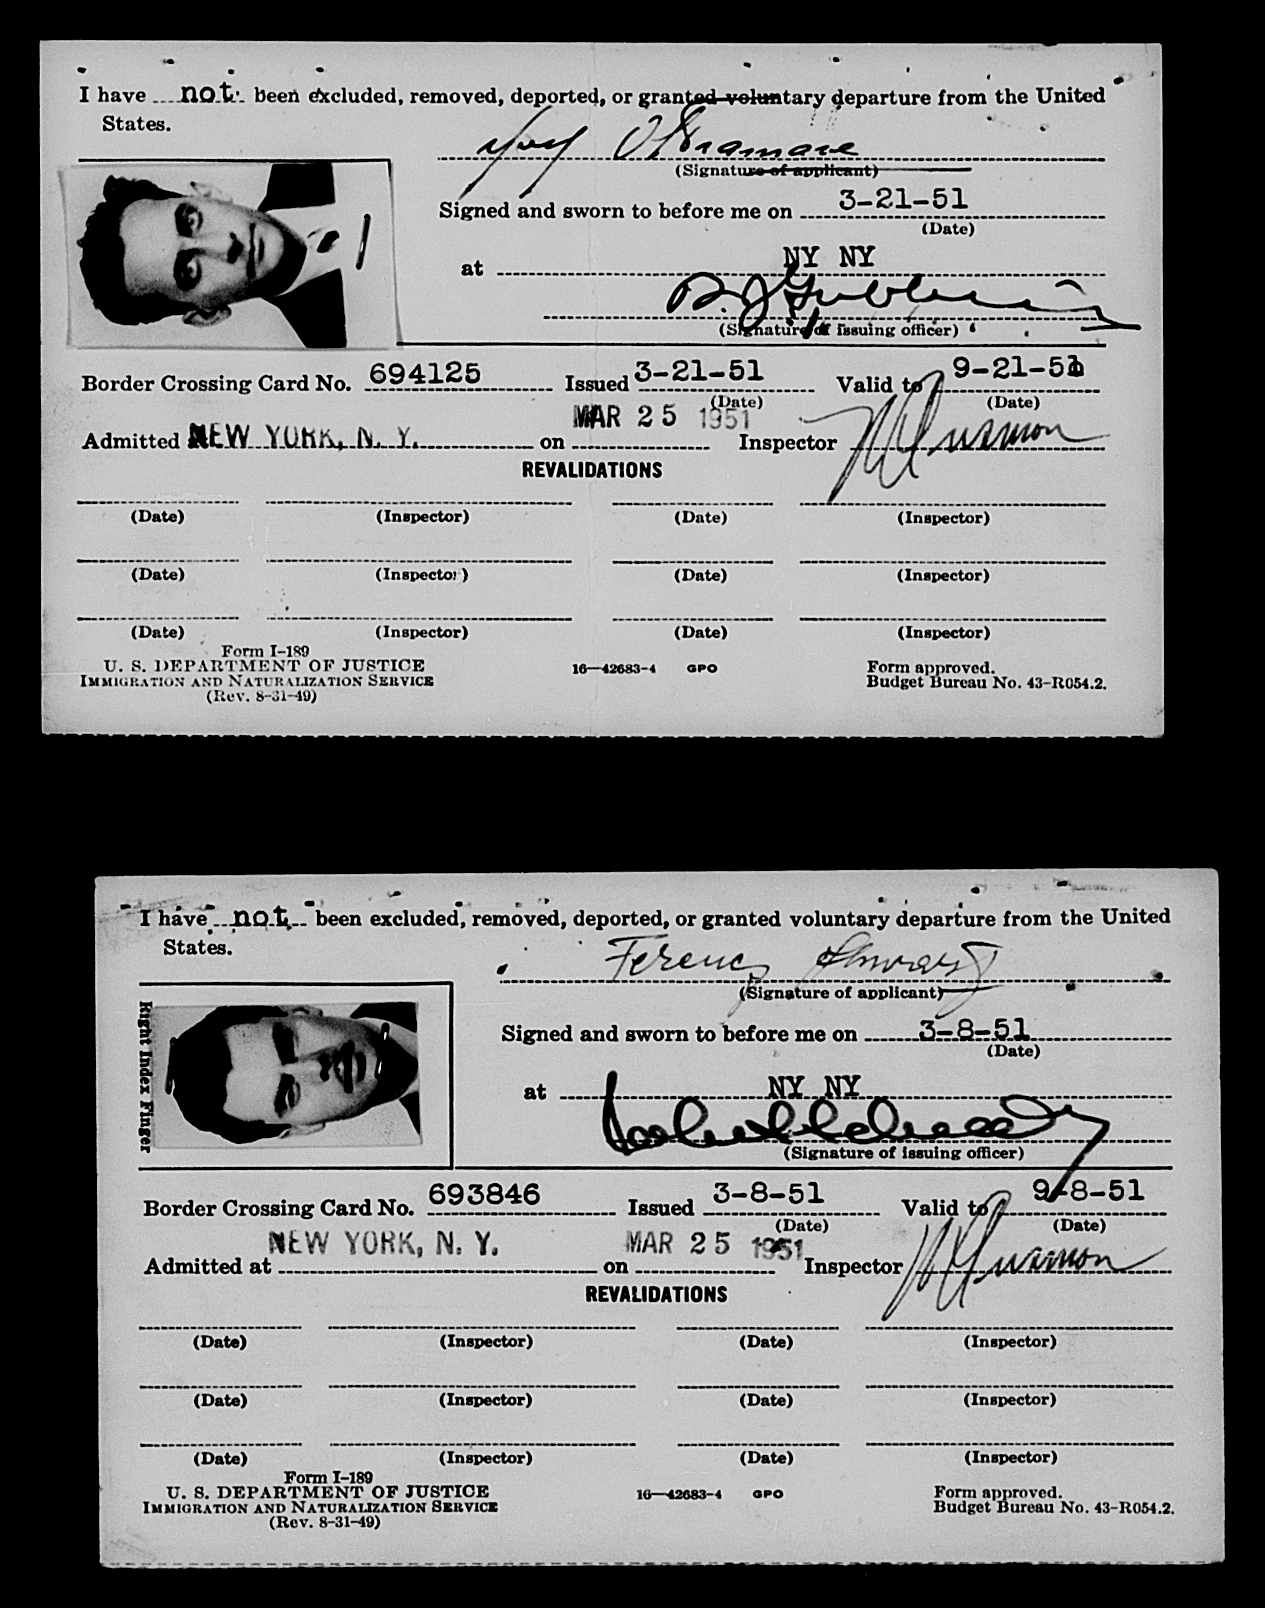 I have not been excluded, removed, deported, or granted voluntary departure from the United
States.
(Signature of applicant)
Signed and sworn to before me on 3-21-51
(Date)
at NY NY
(Signature of issuing officer)
Border Crossing Card No. 694125 Issued 3-21-51 Valid to 9-21-51
(Date) (Date)
Admitted NEW YORK, N. Y. on MAR 25 1951 Inspector
REVALIDATIONS
(Date) (Inspector) (Date) (Inspector)
(Date) (Inspector) (Date) (Inspector)
(Date) (Inspector) (Date) (Inspector)
Form I-189
U. S. DEPARTMENT OF JUSTICE 16—42683-4 GPO Form approved.
IMMIGRATION AND NATURALIZATION SERVICE Budget Bureau No. 43-R054.2.
(Rev. 8-31-49)
I have not been excluded, removed, deported, or granted voluntary departure from the United
States.
Ferenc
(Signature of applicant)
Right Index Finger
Signed and sworn to before me on 3-8-51
(Date)
at NY NY
(Signature of issuing officer)
Border Crossing Card No. 693846 Issued 3-8-51 Valid to 9-8-51
(Date) (Date)
Admitted at NEW YORK, N. Y. on MAR 25 1951 Inspector
REVALIDATIONS
(Date) (Inspector) (Date) (Inspector)
(Date) (Inspector) (Date) (Inspector)
(Date) (Inspector) (Date) (Inspector)
Form I-189
U. S. DEPARTMENT OF JUSTICE 16—42683-4 GPO Form approved.
IMMIGRATION AND NATURALIZATION SERVICE Budget Bureau No. 43-R054.2.
(Rev. 8-31-49)